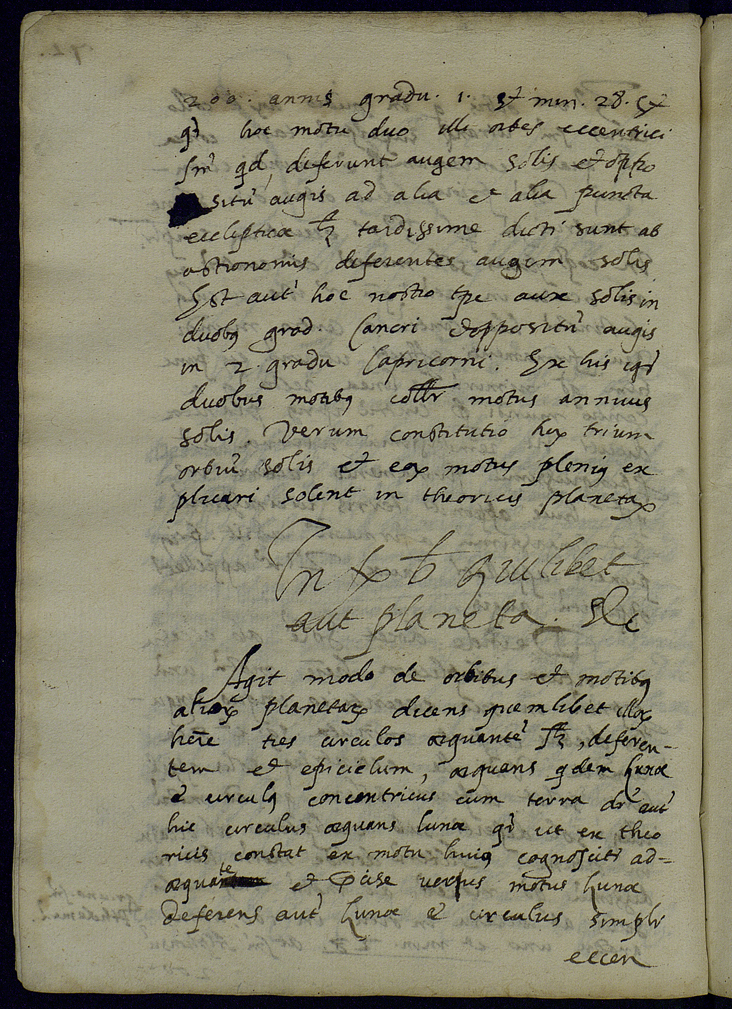 200. annis gradu. 1. et min. 28. et
qr̃ hoc motu duo illi orbes eccentrici
sm̃ qd, deferunt augem solis et oppo
situ᷑ augis ad alia et alia puncta
eclipticæ tardissime dicti sunt ab
astronomis deferentes augem solis
Est aut᷑ hoc nostro tp̃e aux solis in
duobꝯ grad. Cancri et oppositu᷑ augis
in 2. gradu Capricorni. Ex his igr̃
duobus motibꝯ collr̃ motus annuus
solis. Verum constitutio hoꝝ trium
orbiu᷑ solis et eoꝝ motus pleniꝯ ex
plicari solent in theoricis planetaꝝ
In quilibet
aut planeta. &c
Agit modo de orbibus et motibꝯ
alioꝝ planetaꝝ dicens quemlibet illoꝝ
her̃e tres circulos æquante᷑ deferen-
tem et epiciclum, æquans qdem Lunæ
e᷑ circulꝯ concentricus cum terra dr̃ aut᷑
hic circulus æquans lunæ qr̃ ut ex theo
ricis constat ex motu huiꝯ cognoscitr̃ ad-
æquate et verus motus Lunæ
Deferens aut᷑ Lunæ e᷑ circulus simplr̃
eccen